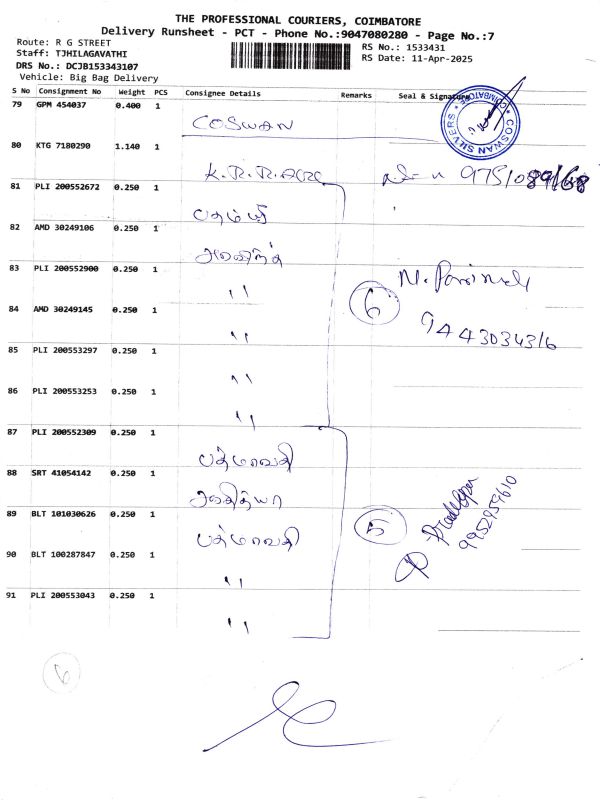 THE PROFESSIONAL COURIERS, COIMBATORE
Delivery Runsheet - PCT - Phone No.:9047080280 - Page No.:7
Route: R G STREET
RS No.: 1533431
Staff: TJHILAGAVATHI
RS Date: 11-Apr-2025
DRS No.: DCJB153343107
Vehicle: Big Bag Delivery
S No Consignment No Weight PCS Consignee Details Remarks Seal & Signature
79 GPM 454037 0.400 1 COSWAN
COSWAN SILVERS * COIMBATORE *
80 KTG 7180290 1.140 1 K.R.R.
81 PLI 200552672 0.250 1
82 AMD 30249106 0.250 1
83 PLI 200552900 0.250 1 ''
84 AMD 30249145 0.250 1 ''
6
9443034316
85 PLI 200553297 0.250 1 ''
86 PLI 200553253 0.250 1 ''
87 PLI 200552309 0.250 1 பத்மாவதி
88 SRT 41054142 0.250 1
89 BLT 101030626 0.250 1 பத்மாவதி
5
90 BLT 100287847 0.250 1 ''
91 PLI 200553043 0.250 1 ''
6